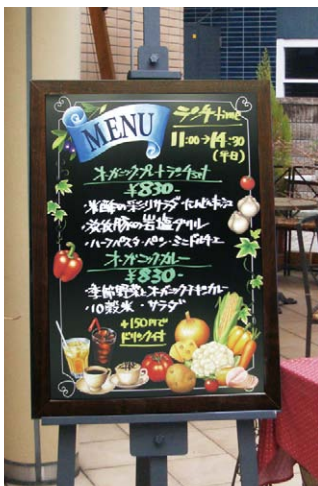 MENU
ランチtime
11:00→14:30
(平日)
オーガニックプレートランチset
¥830-
・米酢の彩りサラダ
・岩塩グリル
・ハーフパスタ・パン・ミニドルチェ
オーガニックカレー
¥830-
・季節野菜とオーガニックチキンカレー
・10穀米・サラダ
+150円で
ドリンク付